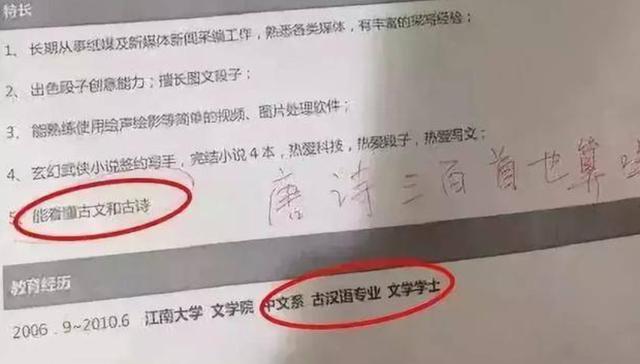 特长
1、长期从事纸媒及新媒体新闻采编工作，熟悉各类媒体，有丰富的采写经验；
2、出色段子创意能力；擅长图文段子；
3、能熟练使用绘声绘影等简单的视频、图片处理软件；
4、玄幻武侠小说签约写手，完结小说4本，热爱科技，热爱段子，热爱写文；
5、能看懂古文和古诗
唐诗三百首也算
教育经历
2006.9~2010.6 江南大学 文学院 中文系 古汉语专业 文学学士